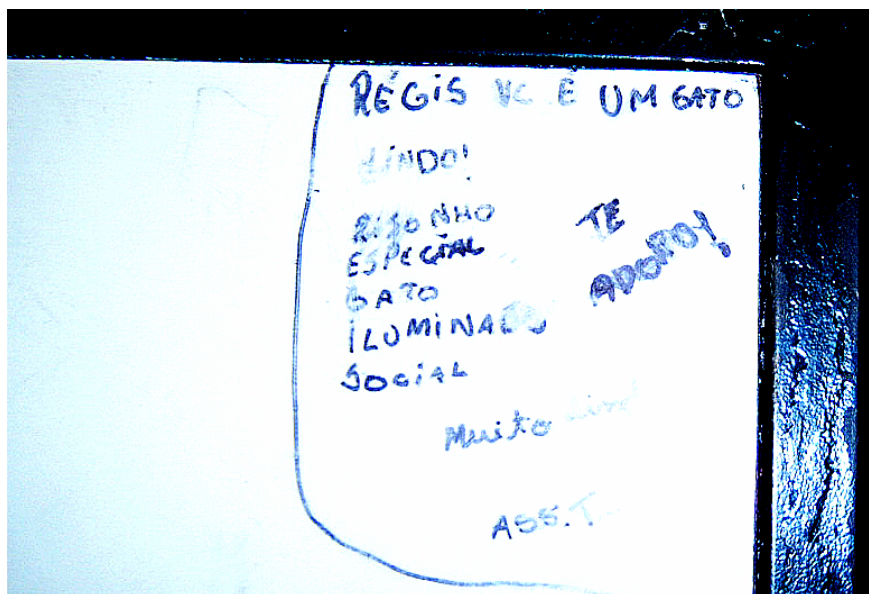 RÉGIS VC É UM GATO
LINDO!
RISONHO
ESPECIAL
GATO
ILUMINADO
SOCIAL
TE
ADORO!
Muito
ASS.